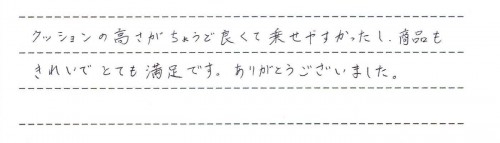 クッションの高さがちょうど良くて乗せやすかったし、商品も
きれいでとても満足です。ありがとうございました。